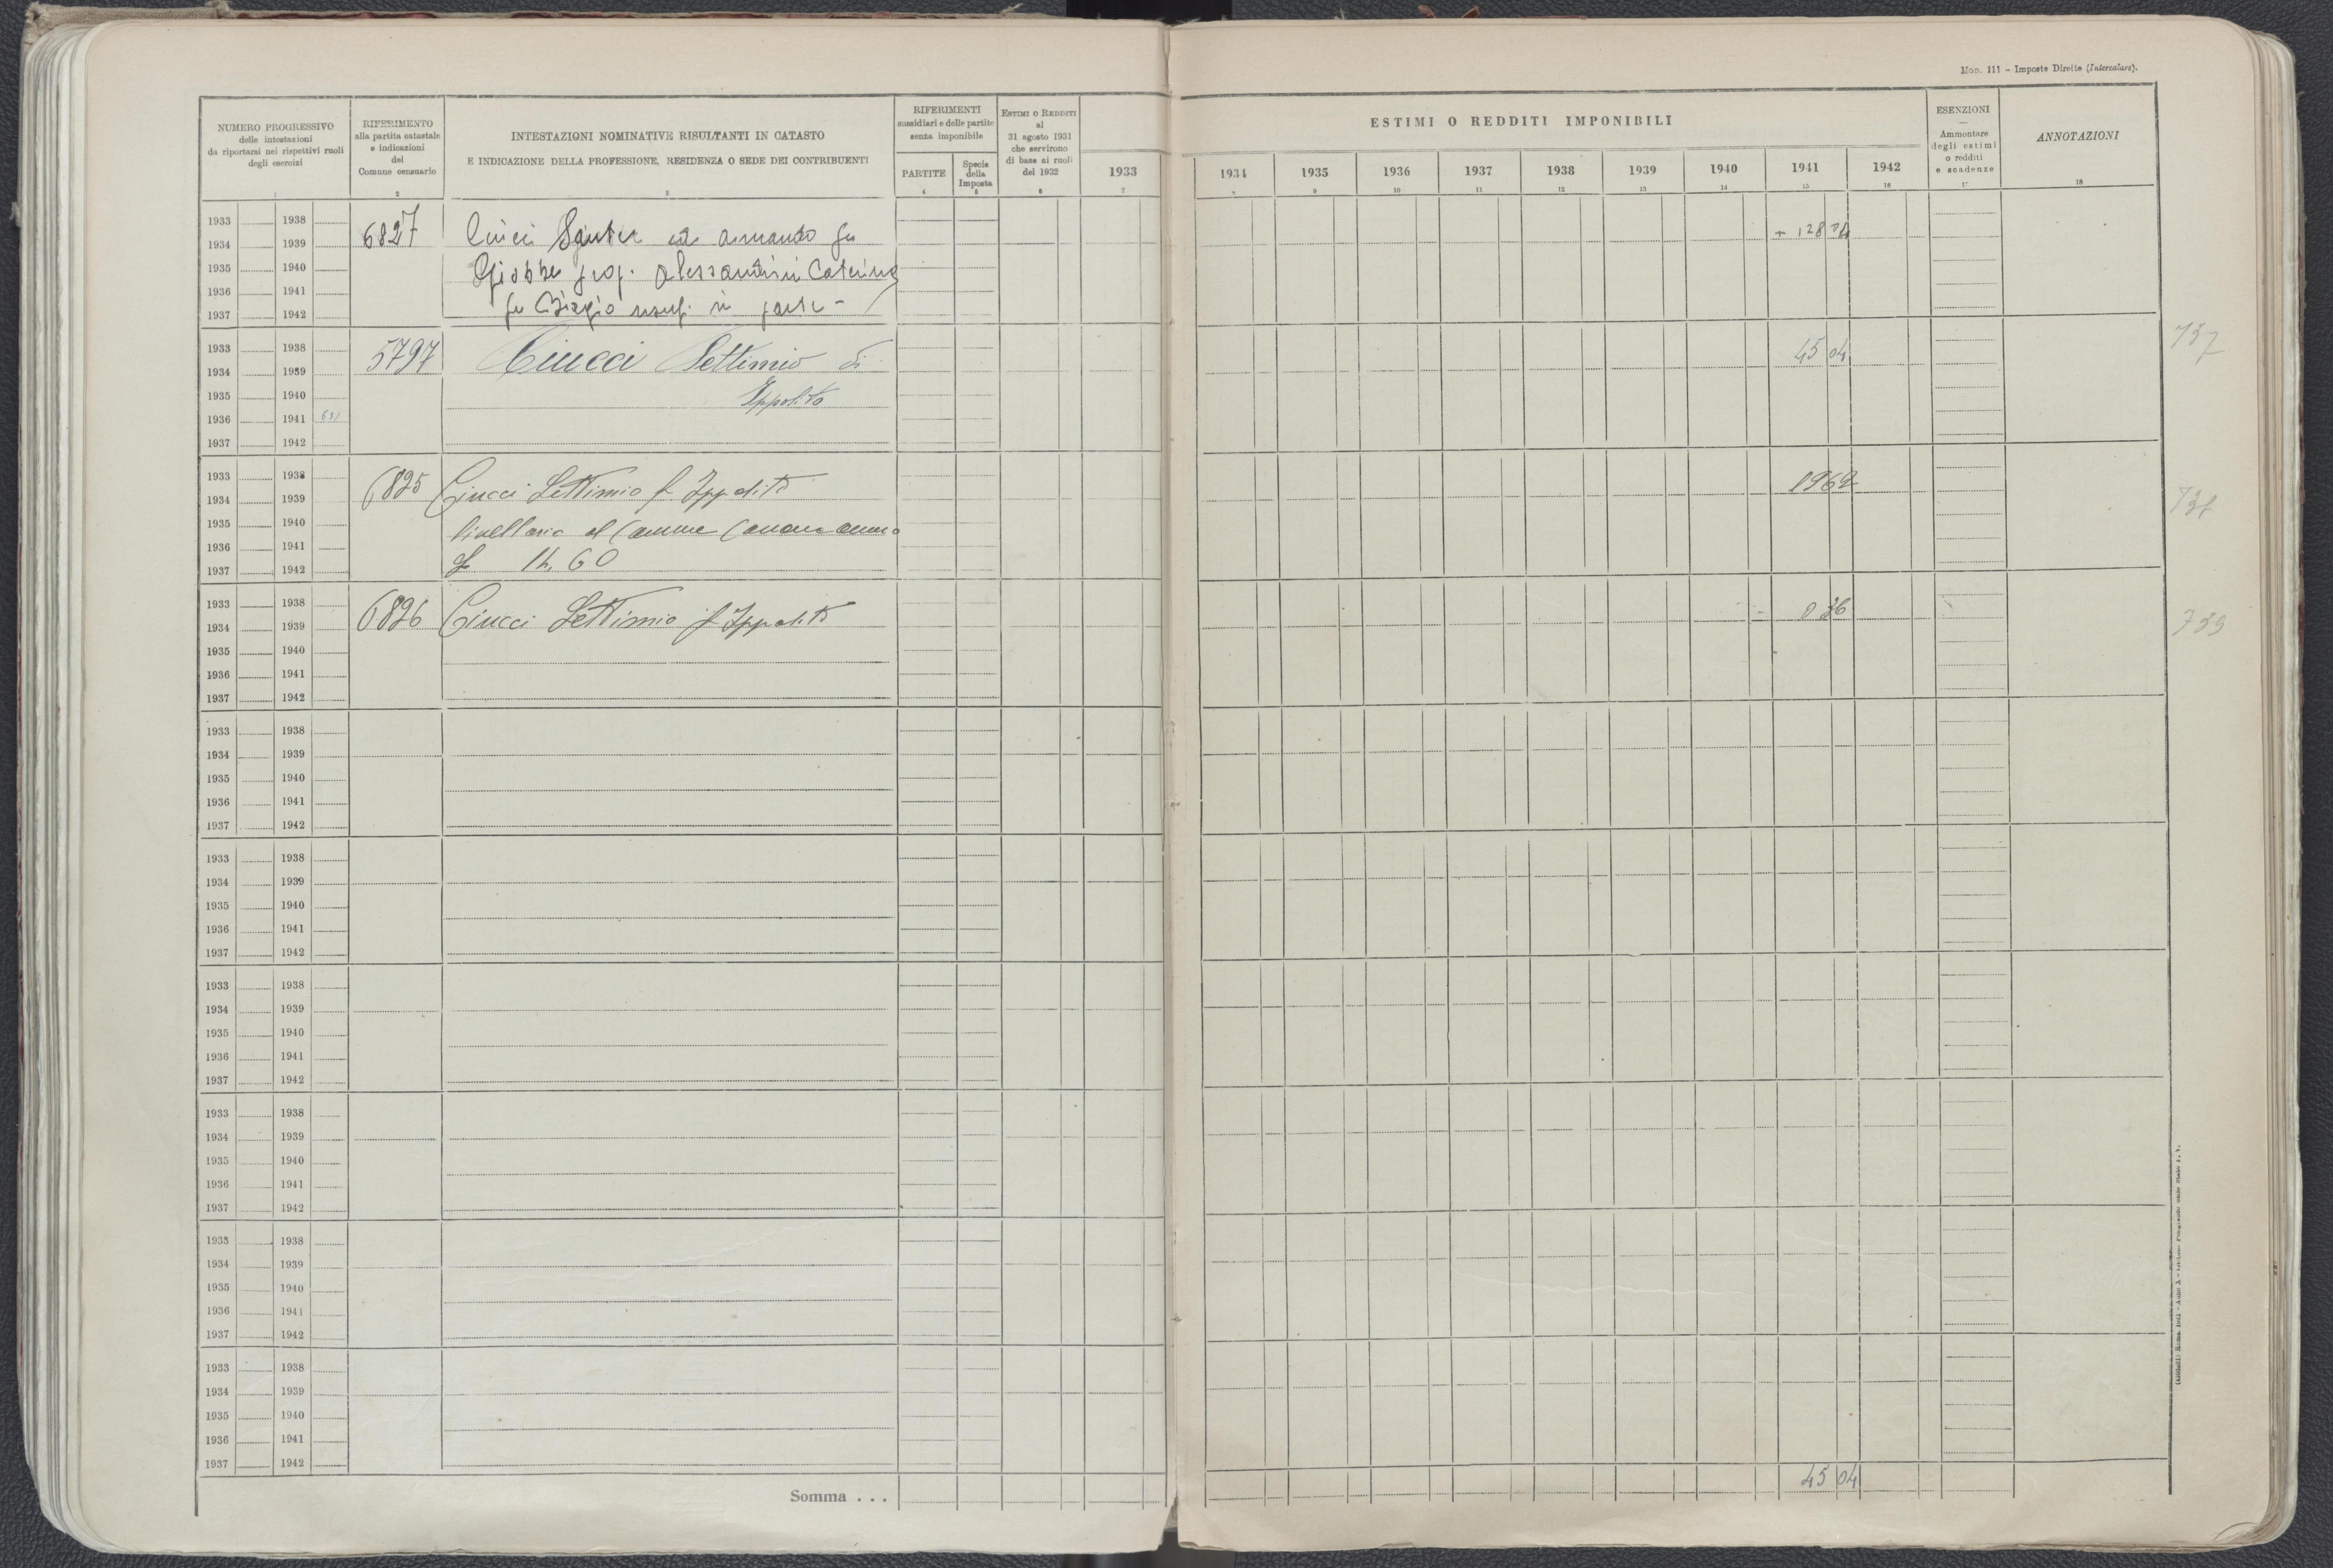 Mod. 111 - Imposte Dirette (Intercalare).
NUMERO PROGRESSIVO
delle intestazioni
da riportarsi nei rispettivi ruoli
degli esercizi
1
RIFERIMENTO
alla partita catastale
e indicazioni
del
Comune censuario
2
INTESTAZIONI NOMINATIVE RISULTANTI IN CATASTO
E INDICAZIONE DELLA PROFESSIONE, RESIDENZA O SEDE DEI CONTRIBUENTI
3
RIFERIMENTI
sussidiari e delle partite
senza imponibile
PARTITE
4
Specie
della
Imposta
5
ESTIMI O REDDITI
al
31 agosto 1931
che servirono
di base ai ruoli
del 1932
6
1933
7
ESTIMI O REDDITI IMPONIBILI
1934 1935 1936 1937 1938 1939 1940 1941 1942
8 9 10 11 12 13 14 15 16
ESENZIONI
Ammontare
degli estimi
o redditi
e scadenze
17
ANNOTAZIONI
18
1933 1938
1934 1939 6827 Ciucci Armando fu + 128 74
1935 1940 prop. Alessandrini Caterina
1936 1941
1937 1942 fu Biagio usuf. in parte -
1933 1938 5797 Ciucci Settimio di 45 04 737
1934 1939
1935 1940 Ippolito
1936 1941 631
1937 1942
1933 1938
1934 1939 6825 Ciucci Settimio f Ippolito 1962 738
1935 1940 livellario al
1936 1941
1937 1942 60
1933 1938
1934 1939 6826 Ciucci Settimio f Ippolito 0 36 739
1935 1940
1936 1941
1937 1942
1933 1938
1934 1939
1935 1940
1936 1941
1937 1942
1933 1938
1934 1939
1935 1940
1936 1941
1937 1942
1933 1938
1934 1939
1935 1940
1936 1941
1937 1942
1933 1938
1934 1939
1935 1940
1936 1941
1937 1942
1933 1938
1934 1939
1935 1940
1936 1941
1937 1942
1933 1938
1934 1939
1935 1940
1936 1941
1937 1942
Somma . . . 45 04